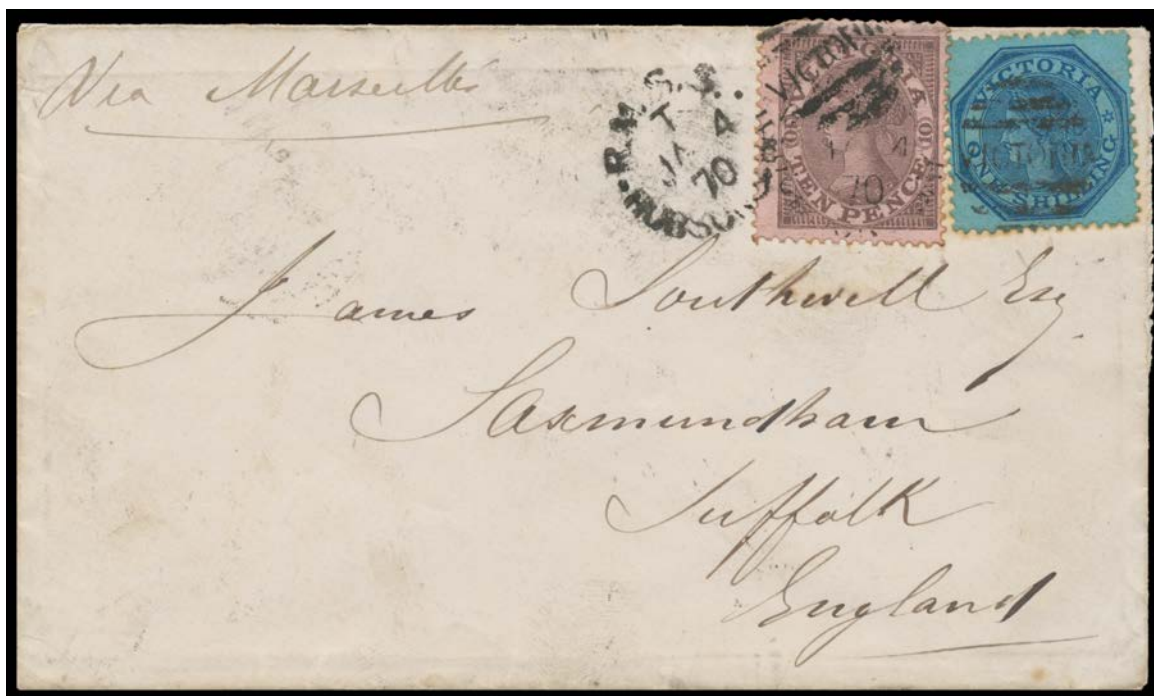 Via Marseilles
R.M.S.S.
T
JA 4
70
HOBSONS
VICTORIA
4
70
TEN PENCE
VICTORIA
VICTORIA
ONE SHILLING
James Southwell Esq
Saxmundham
Suffolk
England